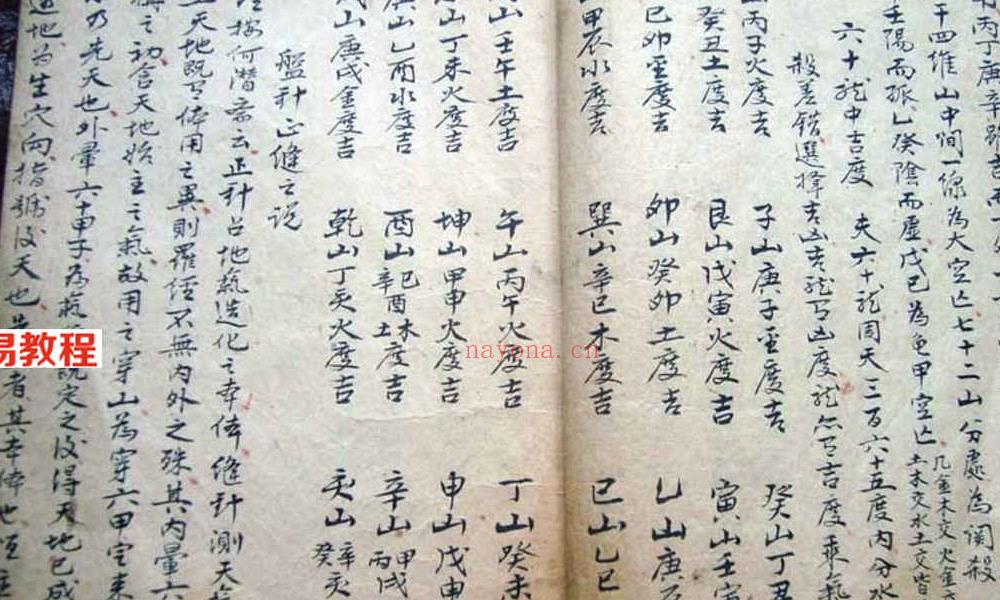 丙丁庚辛
干四維山中間一線為大空亡七十二山分處為関殺
壬陽而孤乙癸陰而虛戊己為龜甲空亡凡金木交火金
土木交水土交皆
六十龍中吉度 夫六十龍周天三百六十五度內分水
殺差錯選擇吉凶吉龍有凶度龍忽有吉度乘氣
山丙子火度吉 子山庚子金度吉 癸山丁丑
癸丑土度吉 艮山戊寅火度吉 寅山壬寅
己卯金度吉 卯山癸卯土度吉 乙山庚
甲辰水度吉 巽山辛巳木度吉 巳山乙巳
山壬午土度吉 午山丙午火度吉 丁山癸未
山丁未火度吉 坤山甲申火度吉 申山戊申
山乙酉水度吉 酉山己酉木辛酉土度吉 辛山甲戌丙
戌山庚戌金度吉 乾山丁亥火度吉 亥山辛亥癸
盤針正縫之說
按何潛齋云正針占地氣造化之本体縫針測天
天地既有体用之異則羅經不無內外之殊其內暈六
之初含天地始主之氣故用之穿山為穿六甲定来
乃先天也外暈六十甲子為 既定之後得天地已成
地為生穴向指號後天也 者其本体也
易教程
nayona.cn